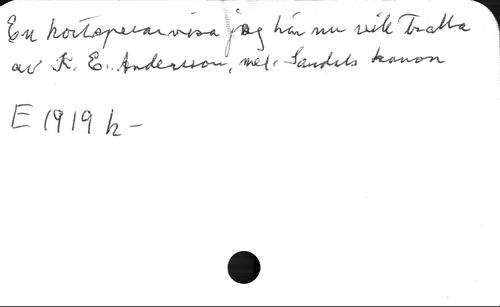 En kortspelarvisa jag här nu vill tralla
av K. E. Andersson, mel. Sandels kanon
E 1919 h-